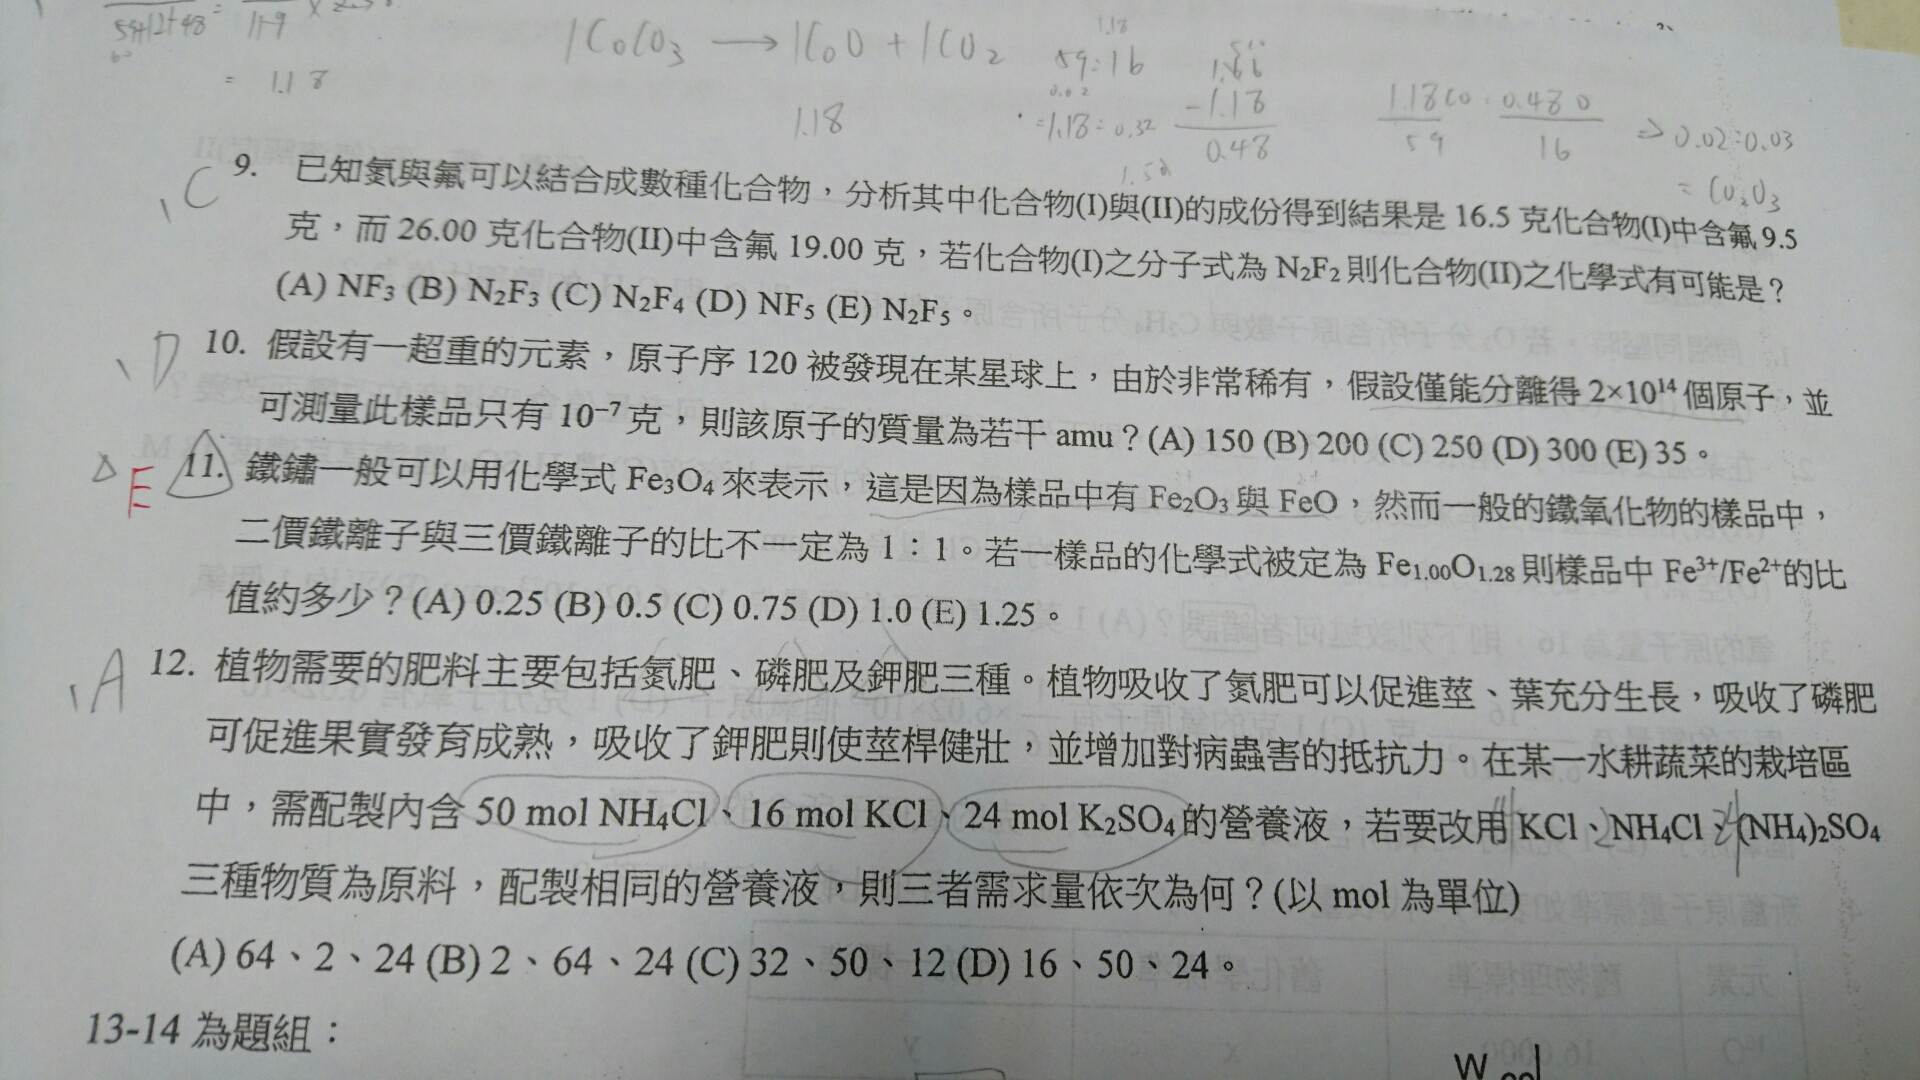 59+12+48 = 119
= 1.18
1CoCO3 → 1CoO + 1CO2
1.18
59:16
=1.18=0.32
1.66
-1.18
0.48
1.18Co : 0.48O
59 16
⇒ 0.02:0.03
= Co2O3
C 9. 已知氮與氟可以結合成數種化合物，分析其中化合物(I)與(II)的成份得到結果是 16.5 克化合物(I)中含氟 9.5
克，而 26.00 克化合物(II)中含氟 19.00 克，若化合物(I)之分子式為 N2F2 則化合物(II)之化學式有可能是？
(A) NF3 (B) N2F3 (C) N2F4 (D) NF5 (E) N2F5。
D 10. 假設有一超重的元素，原子序 120 被發現在某星球上，由於非常稀有，假設僅能分離得 2×10¹⁴ 個原子，並
可測量此樣品只有 10⁻⁷ 克，則該原子的質量為若干 amu？(A) 150 (B) 200 (C) 250 (D) 300 (E) 35。
E 11. 鐵鏽一般可以用化學式 Fe3O4 來表示，這是因為樣品中有 Fe2O3 與 FeO，然而一般的鐵氧化物的樣品中，
二價鐵離子與三價鐵離子的比不一定為 1：1。若一樣品的化學式被定為 Fe1.00O1.28 則樣品中 Fe³⁺/Fe²⁺的比
值約多少？(A) 0.25 (B) 0.5 (C) 0.75 (D) 1.0 (E) 1.25。
A 12. 植物需要的肥料主要包括氮肥、磷肥及鉀肥三種。植物吸收了氮肥可以促進莖、葉充分生長，吸收了磷肥
可促進果實發育成熟，吸收了鉀肥則使莖桿健壯，並增加對病蟲害的抵抗力。在某一水耕蔬菜的栽培區
中，需配製內含 50 mol NH4Cl、16 mol KCl、24 mol K2SO4 的營養液，若要改用 KCl、NH4Cl、(NH4)2SO4
三種物質為原料，配製相同的營養液，則三者需求量依次為何？(以 mol 為單位)
(A) 64、2、24 (B) 2、64、24 (C) 32、50、12 (D) 16、50、24。
13-14 為題組：